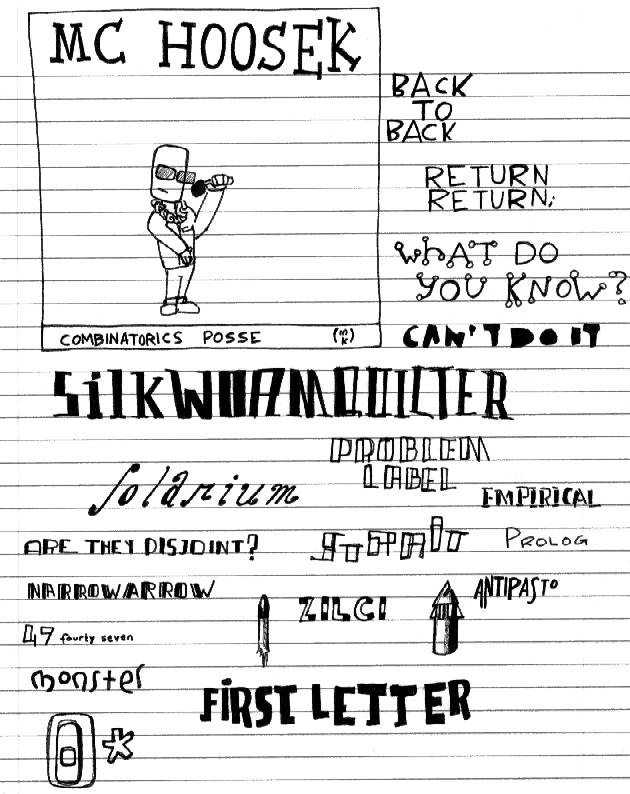 MC HOOSEK
BACK
TO
BACK
RETURN
RETURN;
WhAT DO
YOU KNOW?
COMBINATORICS POSSE (m/k)
CAN'T DO IT
SilKWORMQUILTER
PROBLEM
LABEL
Solarium
EMPIRICAL
ARE THEY DISJOINT?
PROLOG
NARROWARROW
ZILCI
ANTIPASTO
47 fourty seven
monster
FiRST LETTER
*